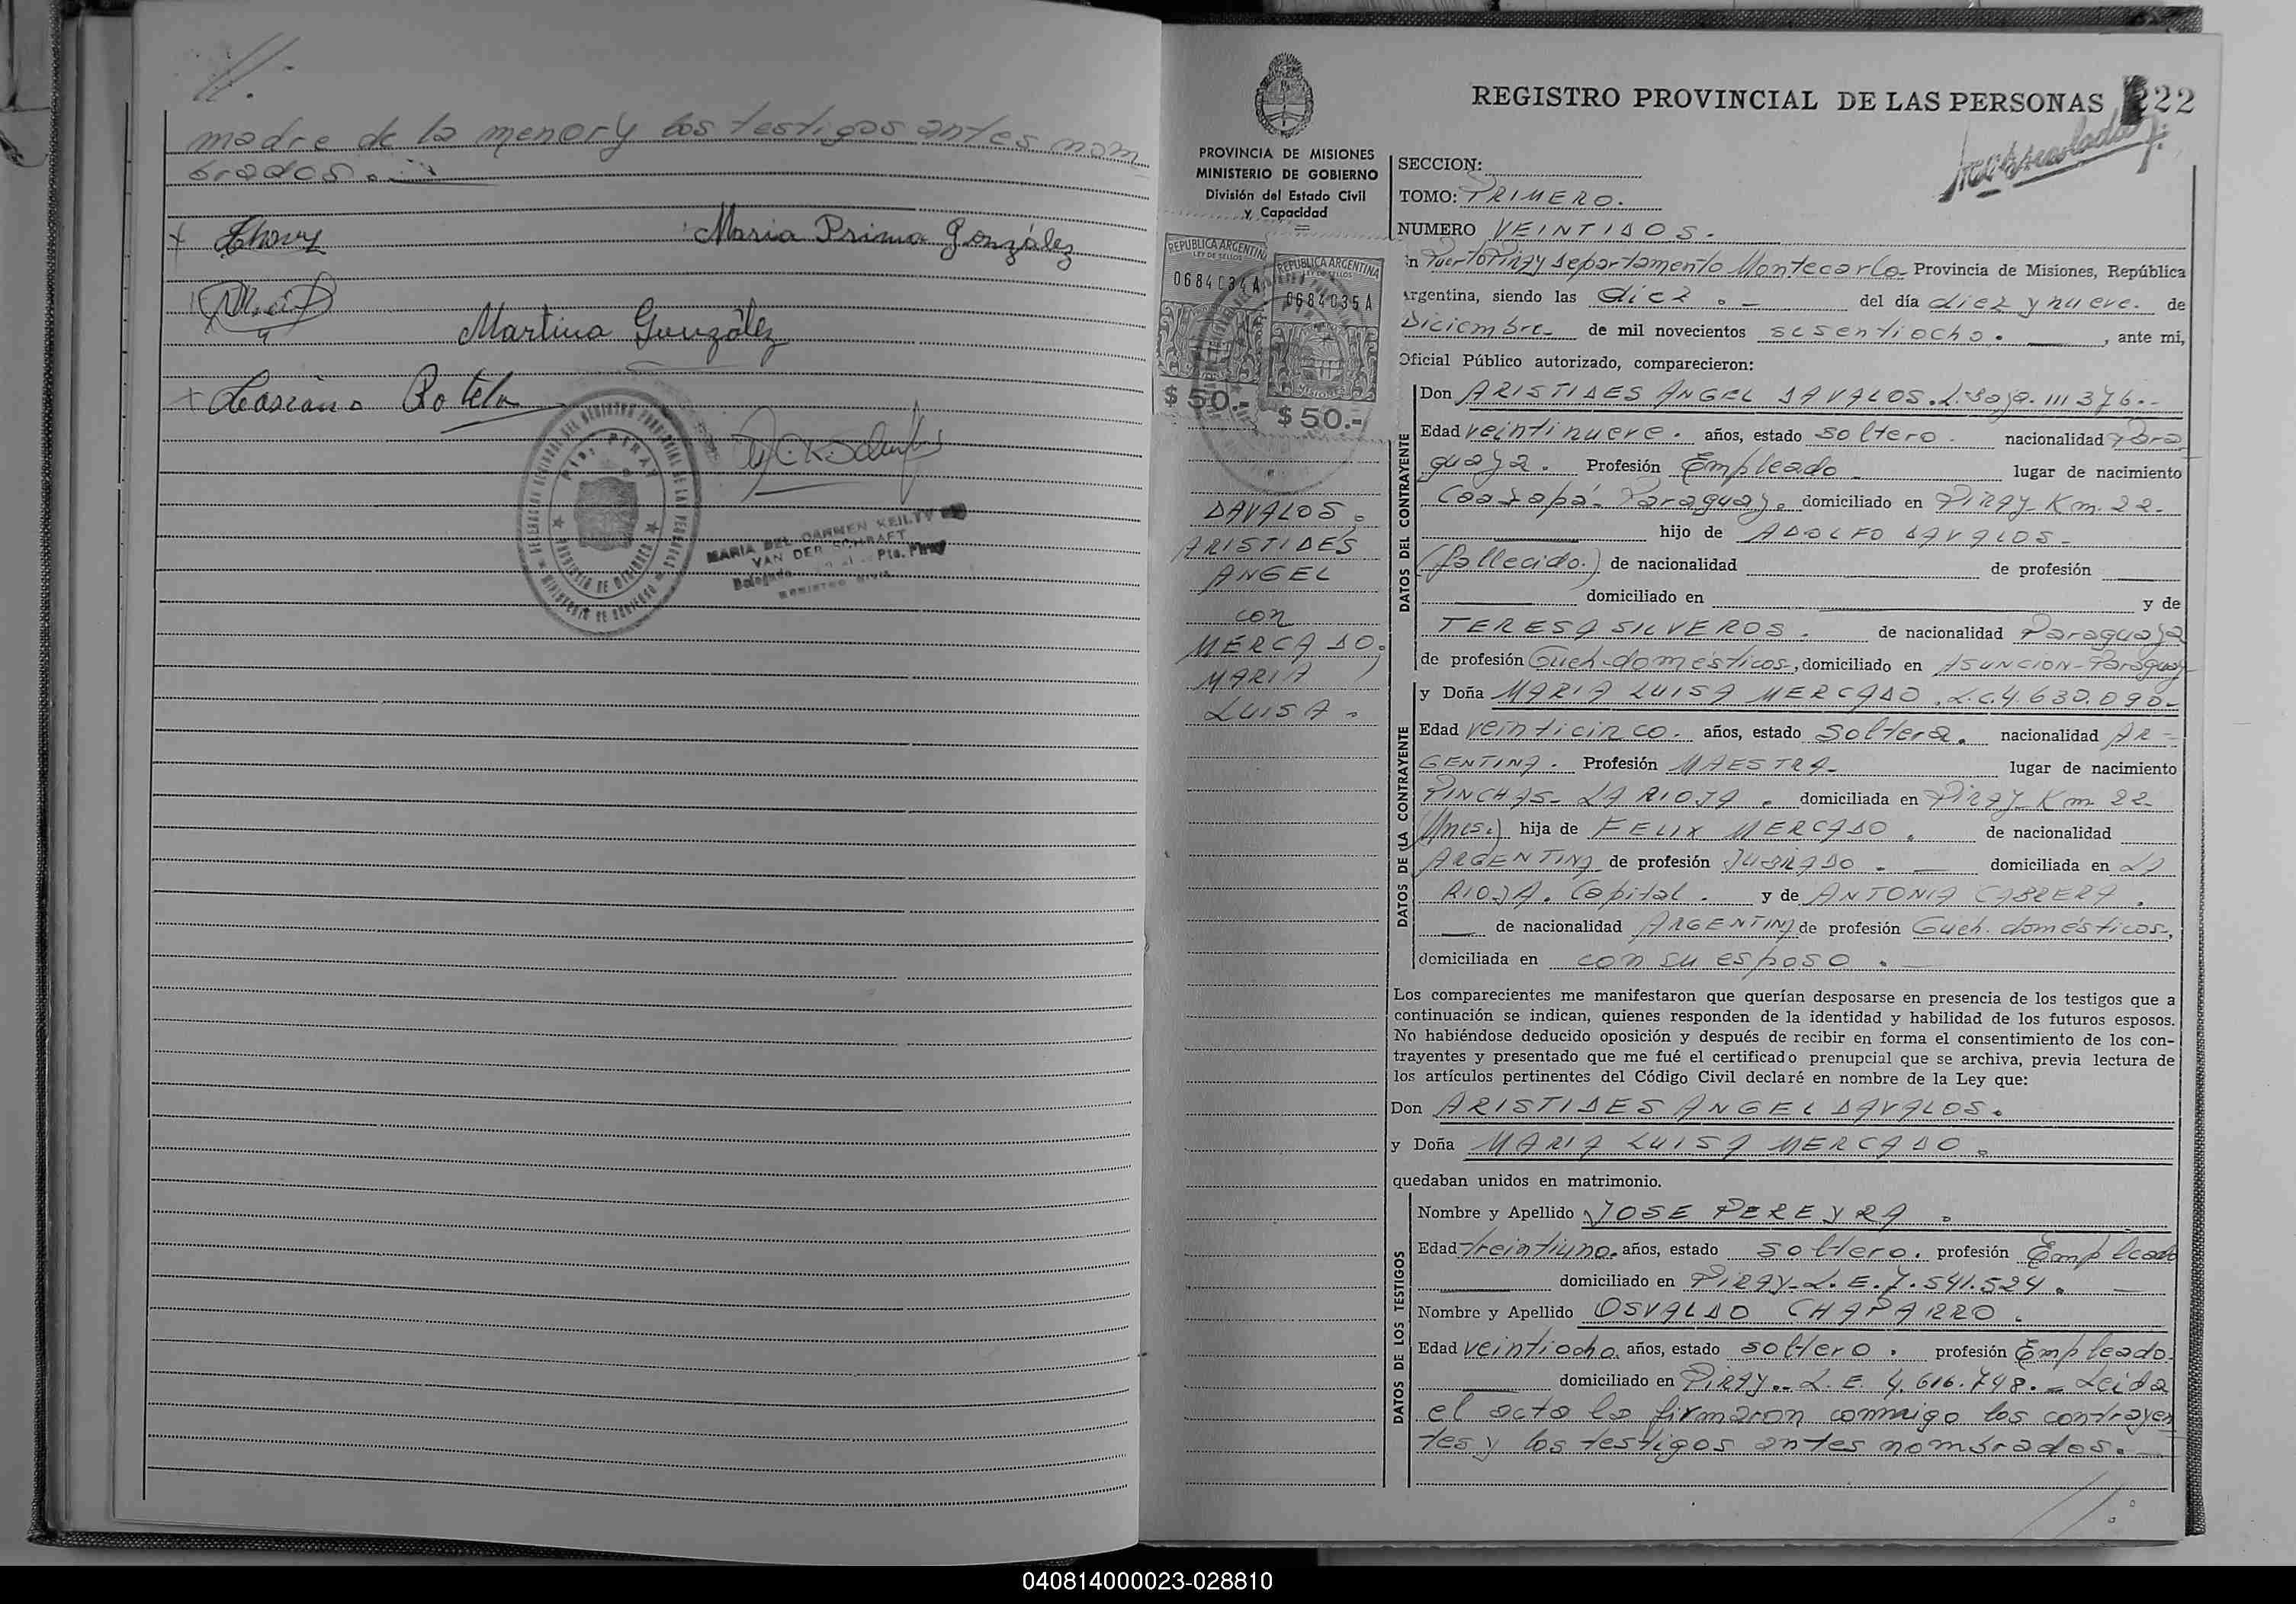 madre de la menor y los testigos antes nom
brados.
Maria Prima González
Martina González
Casiano Rotela
MARIA DEL CARMEN KEILTY DE
VAN DER SCHRAFT
Pto. Piray
REGISTRO PROVINCIAL DE LAS PERSONAS 222
PROVINCIA DE MISIONES
MINISTERIO DE GOBIERNO
División del Estado Civil
y Capacidad
REPUBLICA ARGENTINA
LEY DE SELLOS
0684034A
$ 50.-
REPUBLICA ARGENTINA
LEY DE SELLOS
0684035A
$ 50.-
DAVALOS,
ARISTIDES
ANGEL
con
MERCADO,
MARIA
LUISA.
SECCION:
TOMO: PRIMERO.
NUMERO VEINTIDOS.
En Puerto Piray Departamento Montecarlo Provincia de Misiones, República
Argentina, siendo las diez. del día diez y nueve. de
Diciembre de mil novecientos sesentiocho. , ante mi,
Oficial Público autorizado, comparecieron:
DATOS DEL CONTRAYENTE
Don ARISTIDES ANGEL DAVALOS.
Edad veintinueve. años, estado soltero. nacionalidad Para
guaya. Profesión Empleado lugar de nacimiento
Caazapá - Paraguay. domiciliado en Piray Km. 22.
hijo de ADOLFO DAVALOS
(fallecido.) de nacionalidad de profesión
domiciliado en y de
TERESA SILVEROS. de nacionalidad Paraguaya
de profesión Queh. domésticos, domiciliado en ASUNCION - Paraguay
DATOS DE LA CONTRAYENTE
y Doña MARIA LUISA MERCADO. L.C. 4.630.090
Edad veinticinco. años, estado Soltera. nacionalidad AR-
GENTINA. Profesión MAESTRA lugar de nacimiento
PINCHAS - LA RIOJA. domiciliada en Piray Km 22
(Mnes.) hija de FELIX MERCADO. de nacionalidad
ARGENTINA de profesión JUBILADO. domiciliada en LA
RIOJA. Capital. y de ANTONIA CABRERA.
de nacionalidad ARGENTINA de profesión Queh. domésticos,
domiciliada en con su esposo.
Los comparecientes me manifestaron que querían desposarse en presencia de los testigos que a
continuación se indican, quienes responden de la identidad y habilidad de los futuros esposos.
No habiéndose deducido oposición y después de recibir en forma el consentimiento de los con-
trayentes y presentado que me fué el certificado prenupcial que se archiva, previa lectura de
los artículos pertinentes del Código Civil declaré en nombre de la Ley que:
Don ARISTIDES ANGEL DAVALOS.
y Doña MARIA LUISA MERCADO.
quedaban unidos en matrimonio.
DATOS DE LOS TESTIGOS
Nombre y Apellido JOSE PEREYRA.
Edad treintiuno. años, estado soltero. profesión Empleado
domiciliado en PIRAY - L.E. 7.541.524.
Nombre y Apellido OSVALDO CHAPARRO.
Edad veintiocho. años, estado soltero. profesión Empleado.
domiciliado en PIRAY.- L.E. 4.616.748. - Leida
el acta la firmaron conmigo los contrayen
tes y los testigos antes nombrados.
040814000023-028810